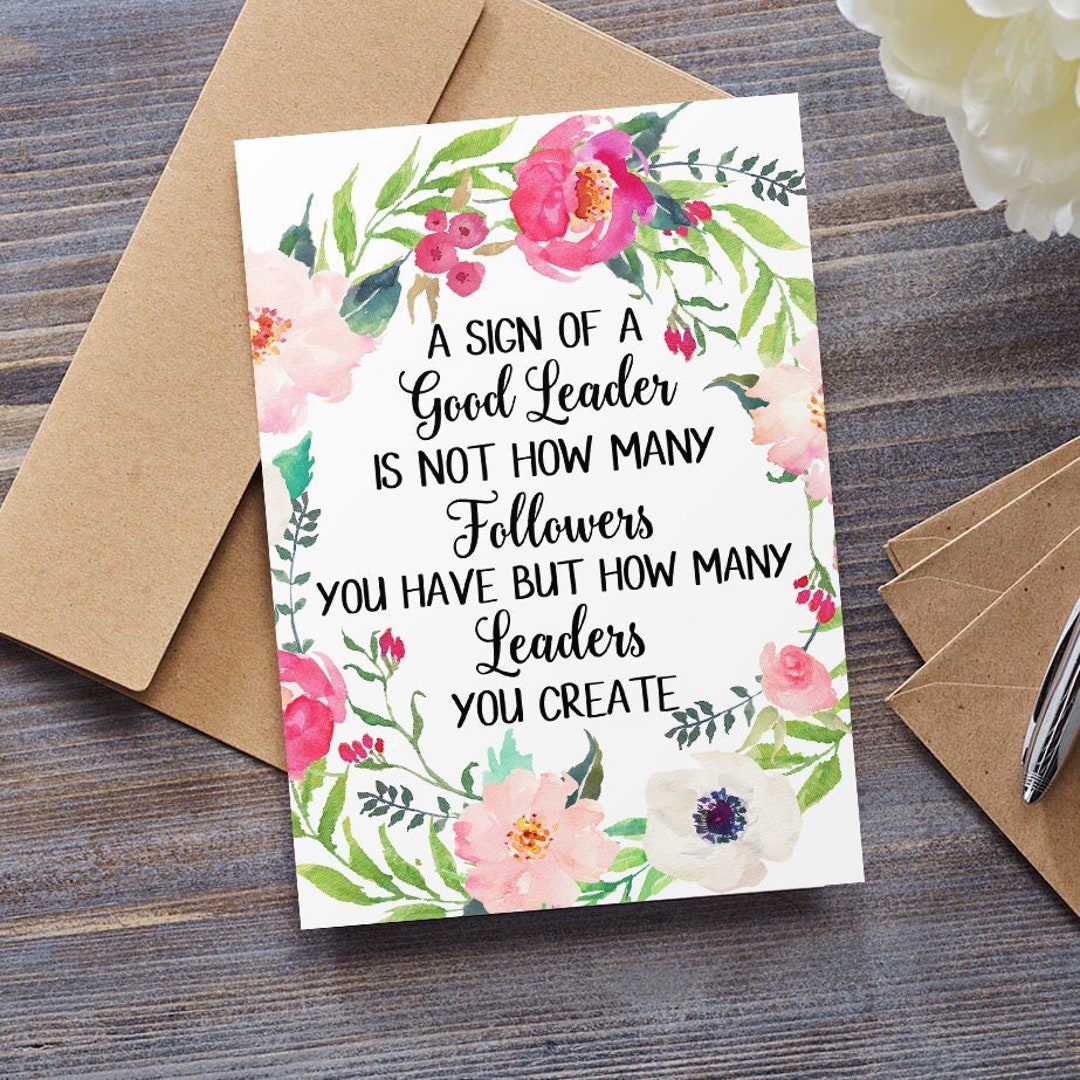 A SIGN OF A
Good Leader
IS NOT HOW MANY
Followers
YOU HAVE BUT HOW MANY
Leaders
YOU CREATE